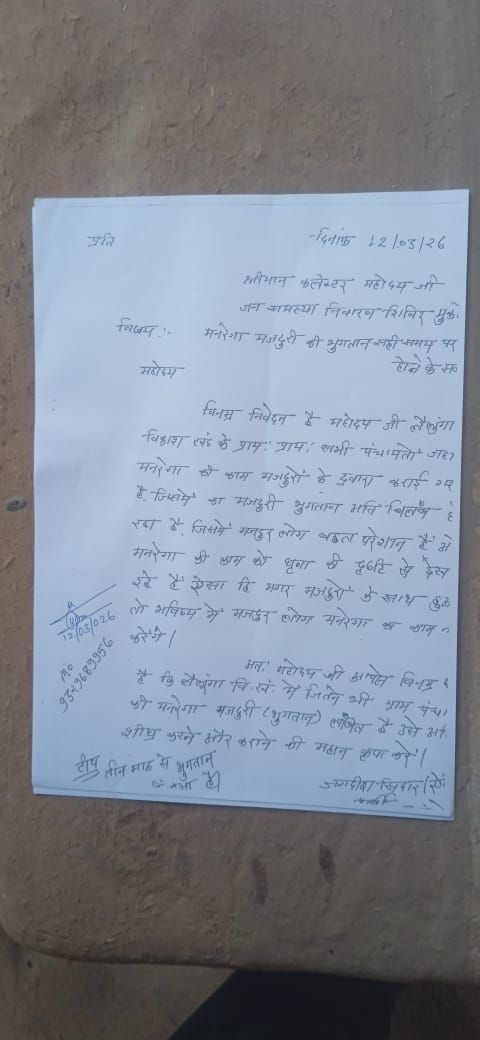 प्रति
दिनांक 12/03/26
श्रीमान कलेक्टर महोदय जी
जन समस्या निवारण शिविर
विषय :- मनरेगा मजदुरी की भुगतान सही समय पर
होने के
महोदय
विनम्र निवेदन है महोदय जी लैलुंगा
विकाश खंड के प्राय: प्राय: सभी पंचायतो जहा
मनरेगा की काम मजदुरों के द्वारा कराई
है. जिसमें का मजदुरी भुगतान अति विलंब
रहा है. जिसमें मजदुर लोग बहुत परेशान हैं
मनरेगा की काम को घृणा की दृष्टि से देख
रहे हैं ऐसा हि अगर मजदुरों के साथ
तो भविष्य में मजदुर लोग मनरेगा का काम
करेंगे।
अत: महोदय जी आपसे विनम्र
है कि लैलूंगा वि.खं. में जितने भी ग्राम
की मनरेगा मजदुरी (भुगतान) लंबित है उसे
शीघ्र करने और कराने की महान कृपा करें।
टीप तीन माह से भुगतान
है।
जगदीश सिदार
12/03/026
Mo
9329689956